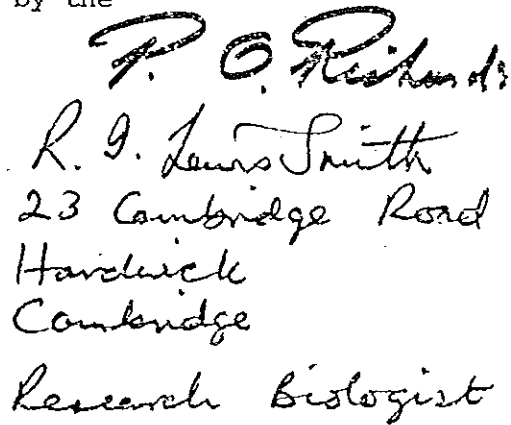 by the
P. O. Richards
R. I. Lewis Smith
23 Cambridge Road
Hardwick
Cambridge
Research Biologist